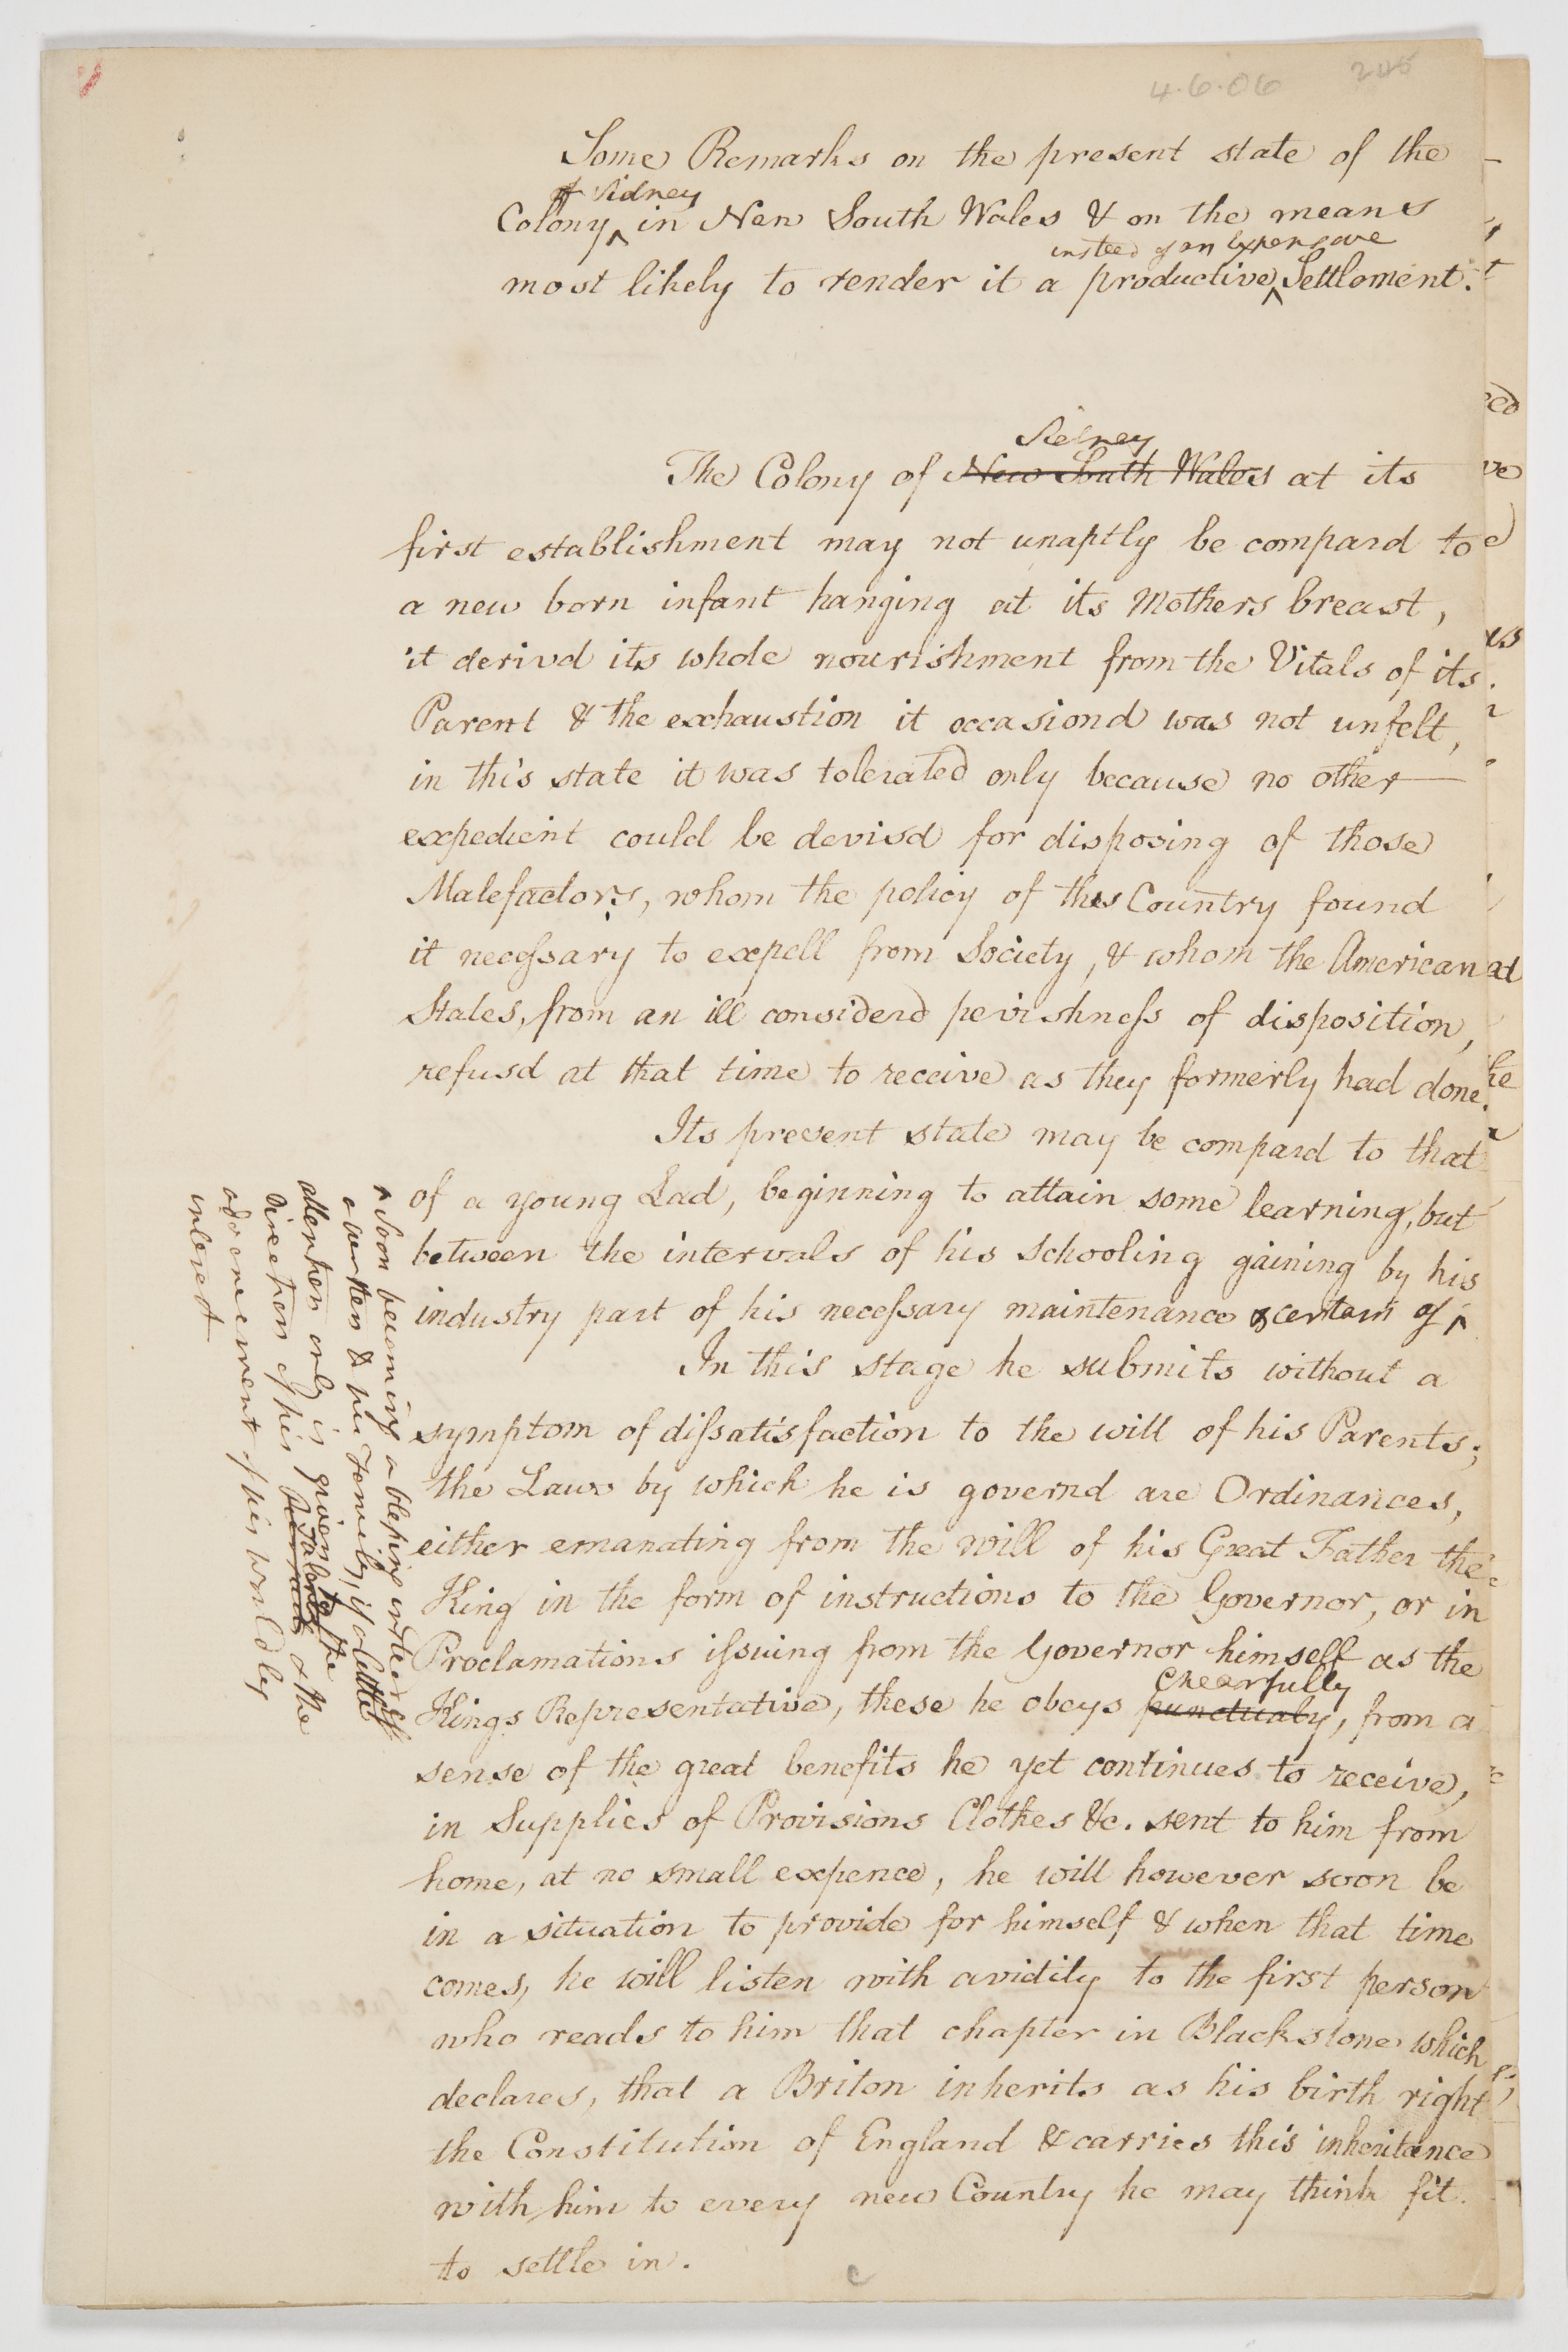 4.6.06 245
Some Remarks on the present state of the
of Sidney
Colony ^ in New South Wales & on the means
insted of an Expensive
most likely to render it a productive ^ Settlement.
Sidney
The Colony of New South Wales at its
first establishment may not unaptly be compard to
a new born infant hanging at its Mothers breast,
it derivd its whole nourishment from the Vitals of its
Parent & the exhaustion it occasiond was not unfelt,
in this state it was tolerated only because no other
expedient could be devisd for disposing of those
Malefactors, whom the policy of this Country found
it necessary to expell from Society, & whom the American
States, from an ill considerd pevishness of disposition,
refusd at that time to receive as they formerly had done.
Its present state may be compard to that
of a young Lad, beginning to attain some learning, but
between the intervals of his schooling gaining by his
industry part of his necessary maintenance & certain of ^
^ soon becoming a blessing insted of
a burthen to his Family, if a little
attention only is given to the
direction of his Talents & the
advancement of his worldly
interest
In this stage he submits without a
symptom of dissatisfaction to the will of his Parents;
the Laws by which he is governd are Ordinances,
either emanating from the will of his Great Father the
King in the form of instructions to the Governor, or in
Proclamations issuing from the Governor himself as the
chearfully
Kings Representative, these he obeys punctualy, from a
sense of the great benefits he yet continues to receive,
in Supplies of Provisions Clothes &c. sent to him from
home, at no small expence, he will however soon be
in a situation to provide for himself & when that time
comes, he will listen with avidity to the first person
who reads to him that chapter in Blackstone which
declares, that a Briton inherits as his birth right
the Constitution of England & carries this inheritance
with him to every new Country he may think fit
to settle in.